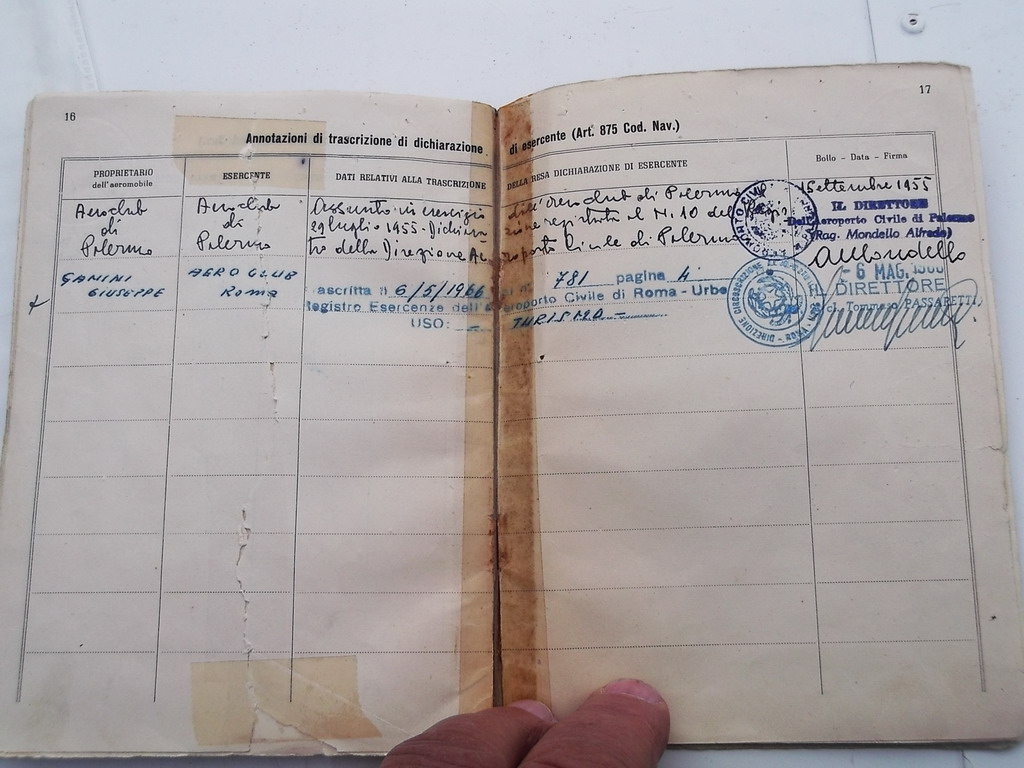 16
17
Annotazioni di trascrizione di dichiarazione di esercente (Art. 875 Cod. Nav.)
PROPRIETARIO
dell'aeromobile
ESERCENTE
DATI RELATIVI ALLA TRASCRIZIONE DELLA RESA DICHIARAZIONE DI ESERCENTE
Bollo - Data - Firma
Aeroclub
di
Palermo
Aeroclub
di
Palermo
Assunto in esercizio dall'Aeroclub di Palermo
29 luglio 1955 - Dichiarazione registrata al N. 10 del
della Direzione Aeroporto Civile di Palermo
Settembre 1955
IL DIRETTORE
Dell'Aeroporto Civile di Palermo
(Rag. Mondello Alfredo)
GIUSEPPE
AERO CLUB
ROMA
ascritta il 6/5/1966 781 pagina 4
Registro Esercenze dell'Aeroporto Civile di Roma - Urbe
USO: - TURISMO -
- 6 MAG.
IL DIRETTORE
Tommaso PASSARETTI
DIREZIONE CIRCOSCRIZIONE